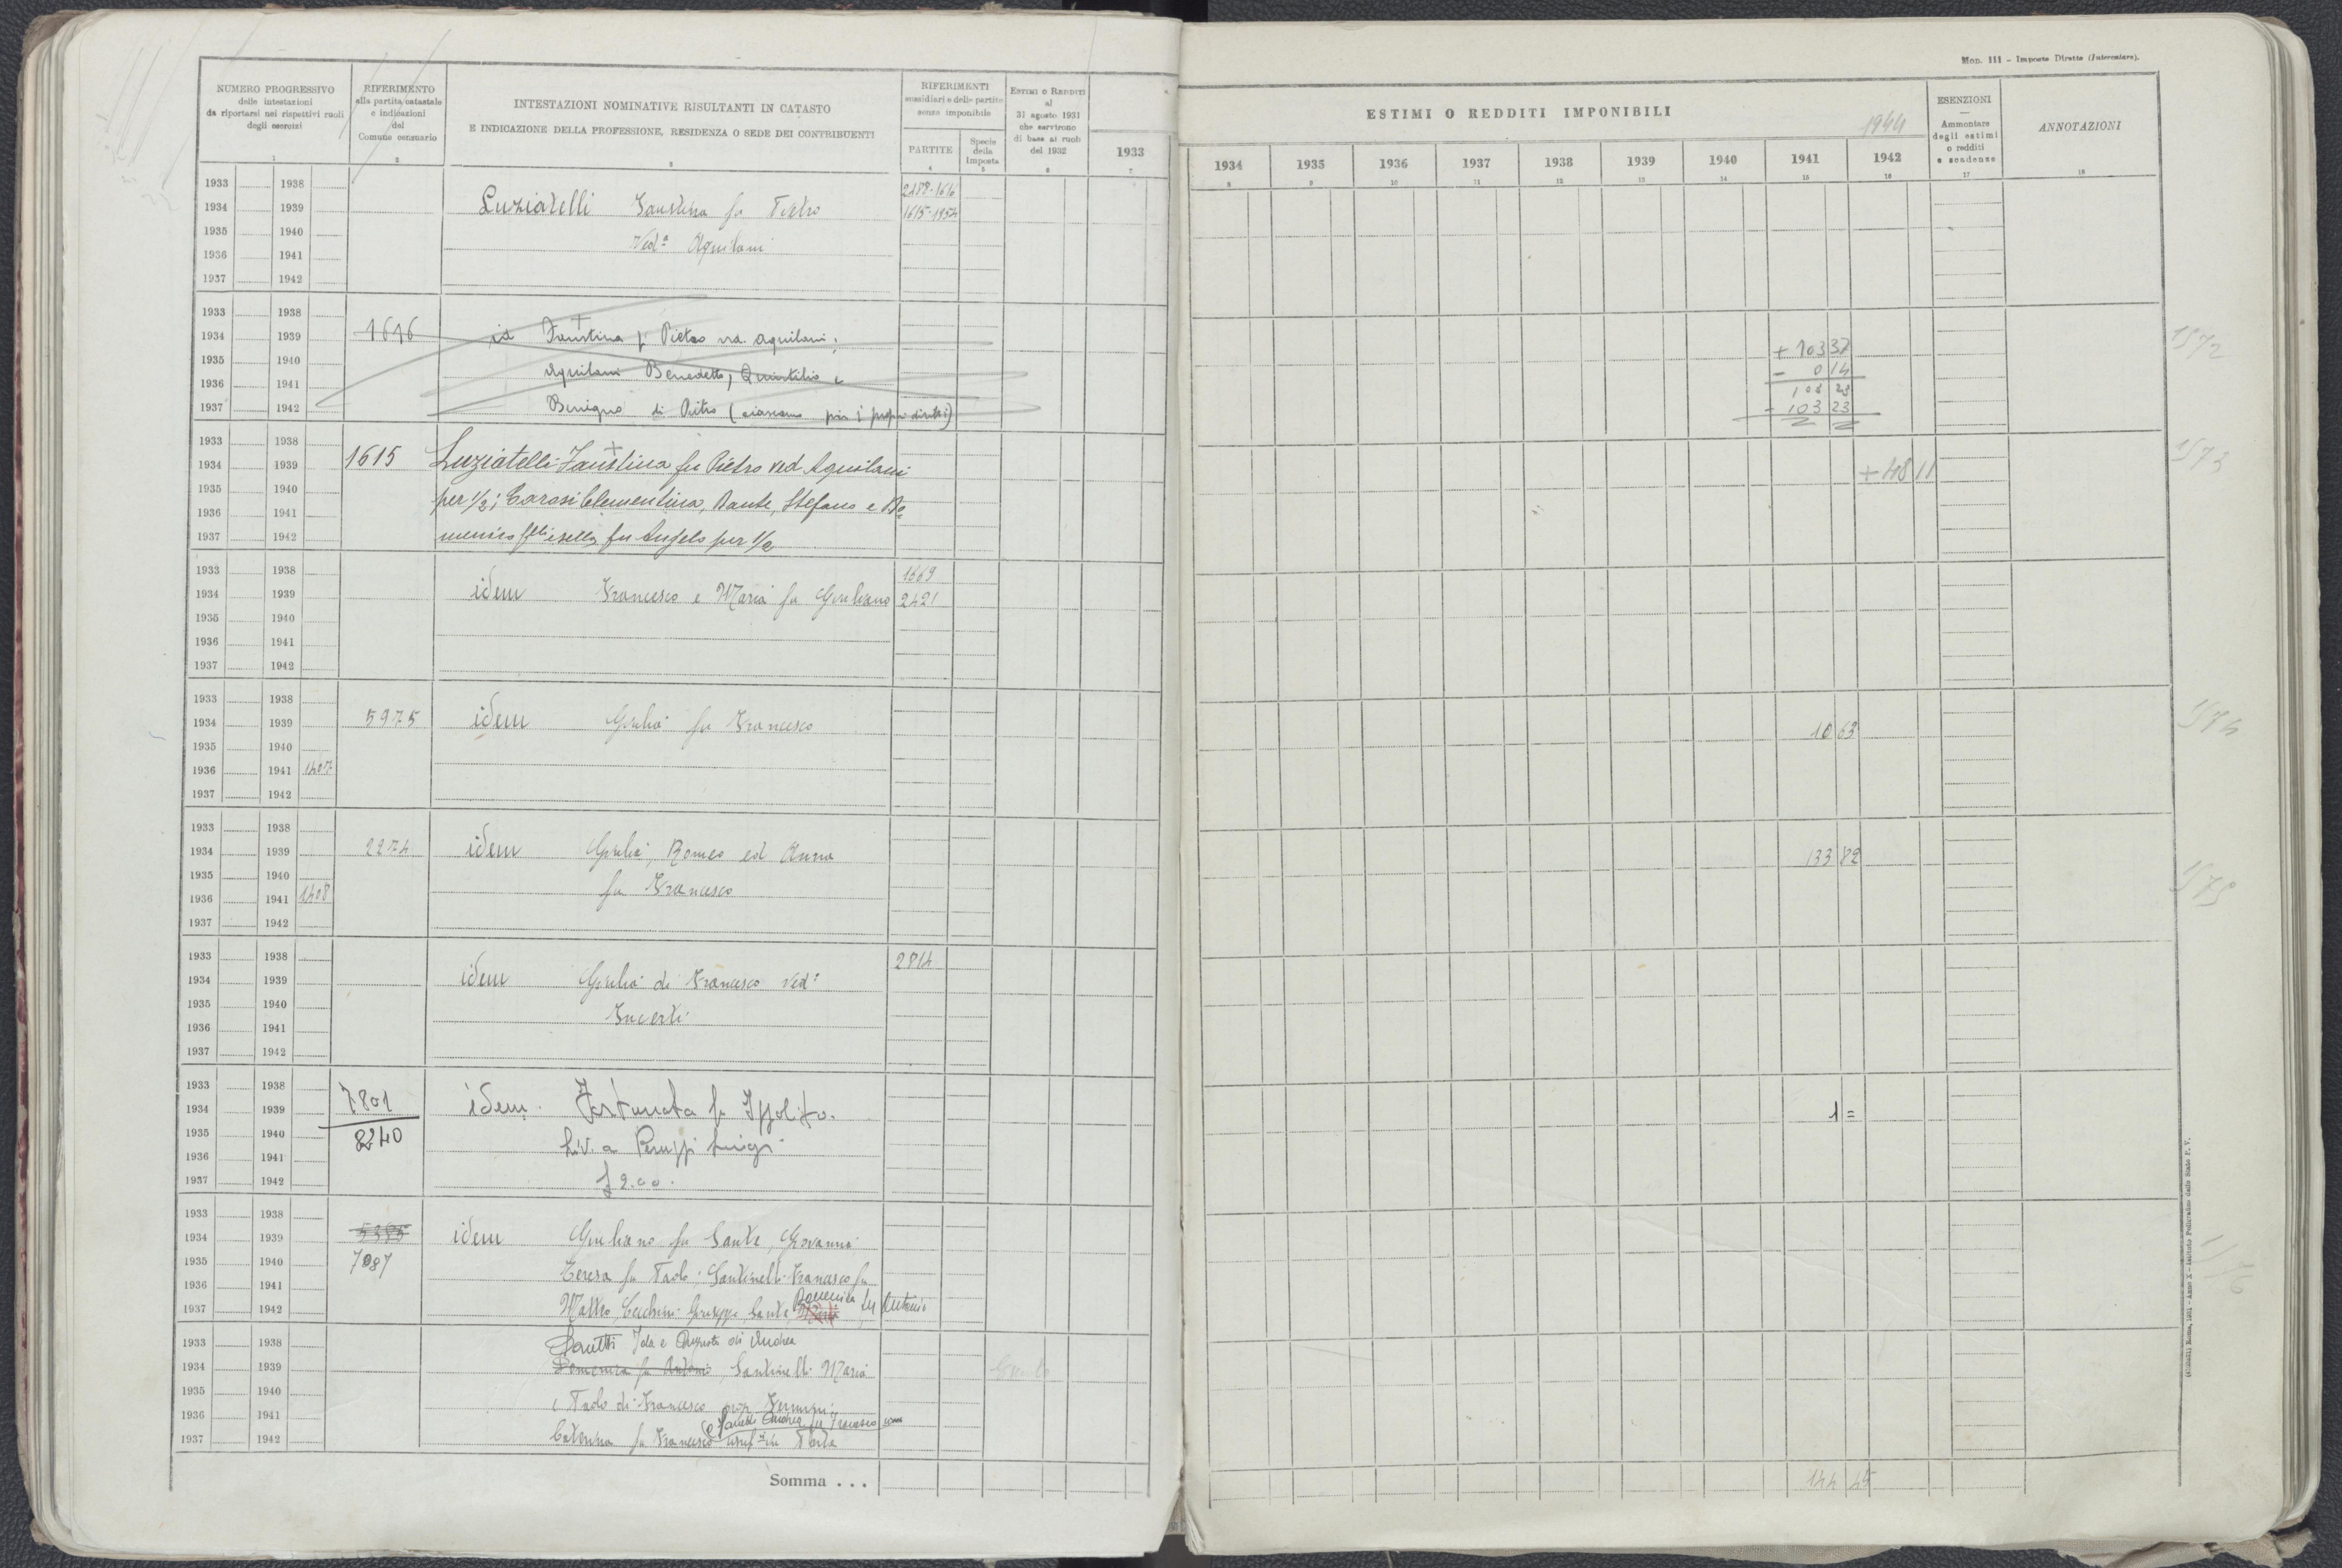 Mod. 111 - Imposte Dirette (Intercalare).
NUMERO PROGRESSIVO
delle intestazioni
da riportarsi nei rispettivi ruoli
degli esercizi
1
RIFERIMENTO
alla partita catastale
e indicazioni
del
Comune censuario
2
INTESTAZIONI NOMINATIVE RISULTANTI IN CATASTO
E INDICAZIONE DELLA PROFESSIONE, RESIDENZA O SEDE DEI CONTRIBUENTI
3
RIFERIMENTI
sussidiari e delle partite
senza imponibile
PARTITE
4
Specie
della
Imposta
5
ESTIMI O REDDITI
al
31 agosto 1931
che servirono
di base ai ruoli
del 1932
6
ESTIMI O REDDITI IMPONIBILI
1944
1933 1934 1935 1936 1937 1938 1939 1940 1941 1942
7 8 9 10 11 12 13 14 15 16
ESENZIONI
Ammontare
degli estimi
o redditi
e scadenze
17
ANNOTAZIONI
18
1933 1938
1934 1939
1935 1940
1936 1941
1937 1942
Luziatelli Faustina fu Pietro
Ved.a Aquilani
2188-1616
1615-1954
1933 1938
1934 1939
1935 1940
1936 1941
1937 1942
1616
id Faustina f. Pietro ved. Aquilani;
Aquilani Benedetto, Quintilio e
Benigno di Pietro (ciascuno per i propri diritti)
+ 103 37
- 0 14
103 23
- 103 23
1572
1933 1938
1934 1939
1935 1940
1936 1941
1937 1942
1615
Luziatelli Faustina fu Pietro ved Aquilani
per 1/2; Carosi Clementina, Dante, Stefano e Do=
menico f.lli e sella fu Angelo per 1/2
+ 48 11
1573
1933 1938
1934 1939
1935 1940
1936 1941
1937 1942
idem Francesco e Maria fu Giuliano
1669
2421
1933 1938
1934 1939
1935 1940
1936 1941 1407
1937 1942
5975
idem Giulia fu Francesco
10 63
1574
1933 1938
1934 1939
1935 1940
1936 1941 1408
1937 1942
2274
idem Giulia, Romeo ed Anna
fu Francesco
133 82
1575
1933 1938
1934 1939
1935 1940
1936 1941
1937 1942
idem Giulia di Francesco Ved.a
Incerti
2814
1933 1938
1934 1939
1935 1940
1936 1941
1937 1942
7801
8240
idem. Fortunata fu Ippolito.
liv. a Peruzzi Luigi
£ 2.00.
1 =
1933 1938
1934 1939
1935 1940
1936 1941
1937 1942
5385
7087
idem Giuliano fu Sante, Giovanni
Teresa fu Paolo; Santinelli Francesco fu
Matteo, Cecchini Giuseppe, Sante, Domenica fu Antonio
1576
1933 1938
1934 1939
1935 1940
1936 1941
1937 1942
Ida e Augusta di Andrea
Domenica fu Antonio, Santinelli Maria
e Paolo di Francesco prop
Caterina fu Francesco
Somma . . .
144 45